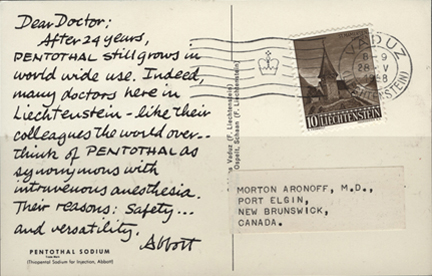 Dear Doctor:
After 24 years,
PENTOTHAL still grows in
world wide use. Indeed,
many doctors here in
Liechtenstein - like their
colleagues the world over--
think of PENTOTHAL as
synonymous with
intravenous anesthesia.
Their reasons: Safety...
and versatility.
Abbott
PENTOTHAL SODIUM
(Thiopental Sodium for Injection, Abbott)
VADUZ
(LIECHTENSTEIN)
10 LIECHTENSTEIN
MORTON ARONOFF, M.D.,
PORT ELGIN,
NEW BRUNSWICK,
CANADA.